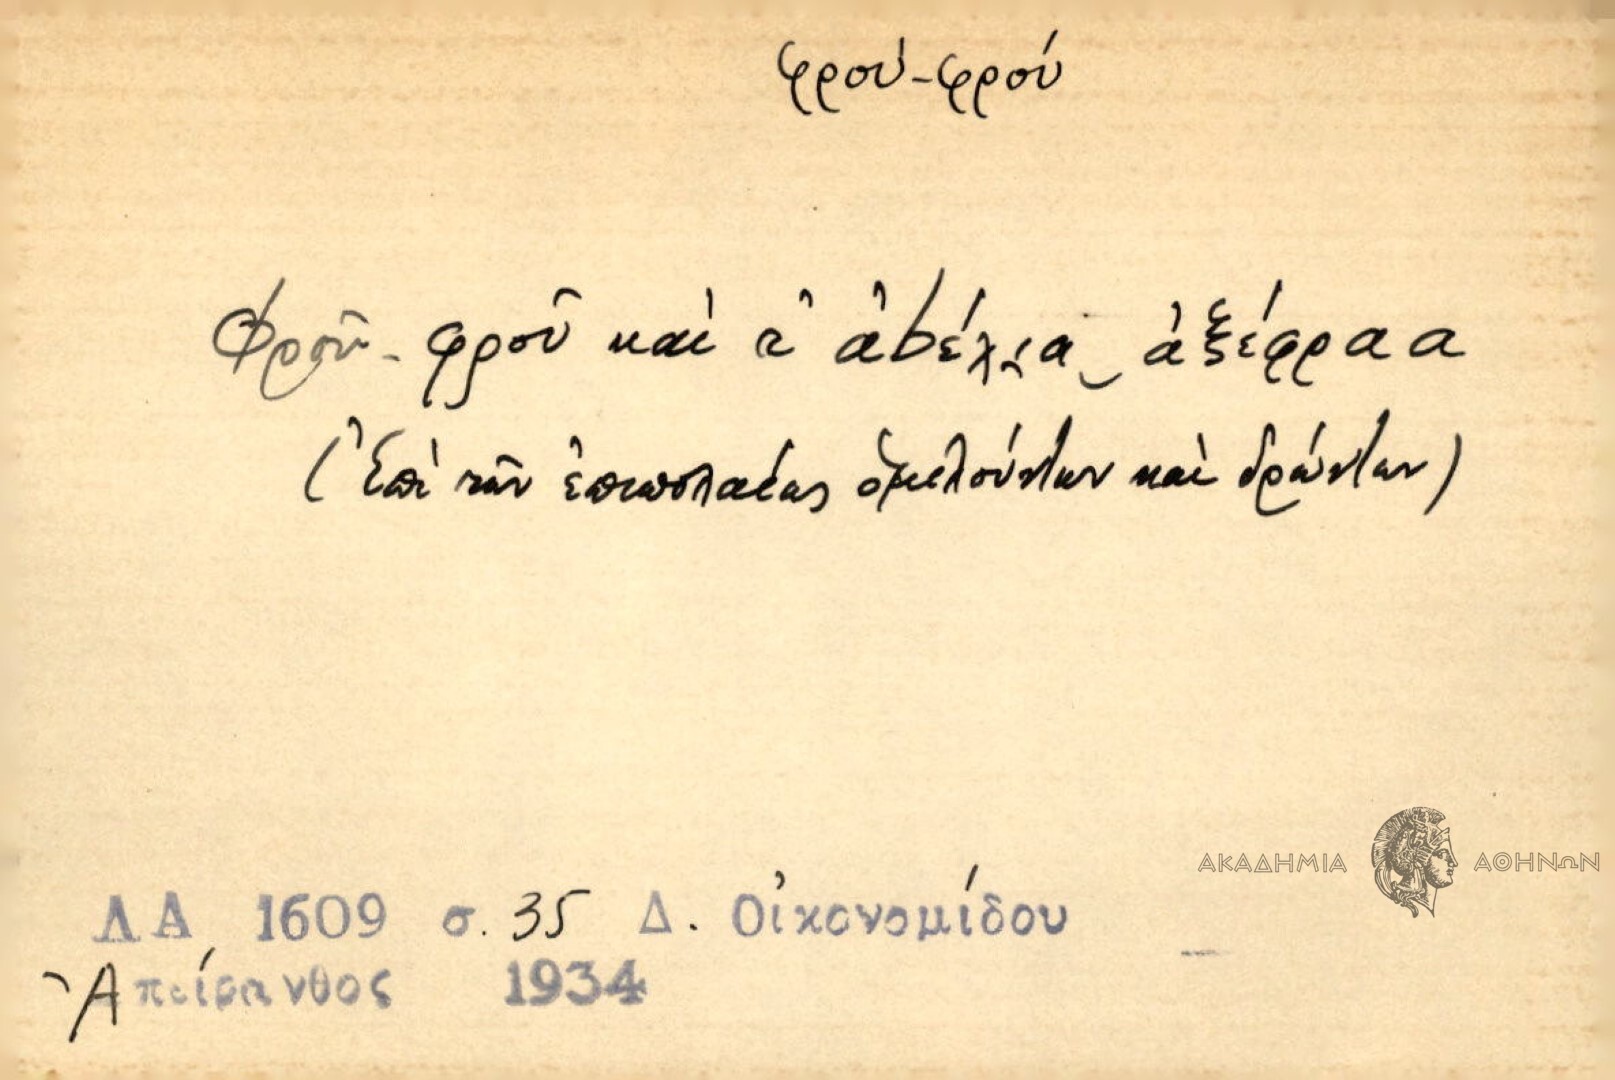 φρού-φρού
Φροῦ-φροῦ καὶ τ' ἀbέλια ἀξέφραα
(Ἐπὶ τῶν ἐπιπολαίως ὁμιλούντων καὶ δρώντων)
ΑΚΑΔΗΜΙΑ ΑΘΗΝΩΝ
ΛΑ 1609 σ. 35 Δ. Οἰκονομίδου
Ἀπείρανθος 1934